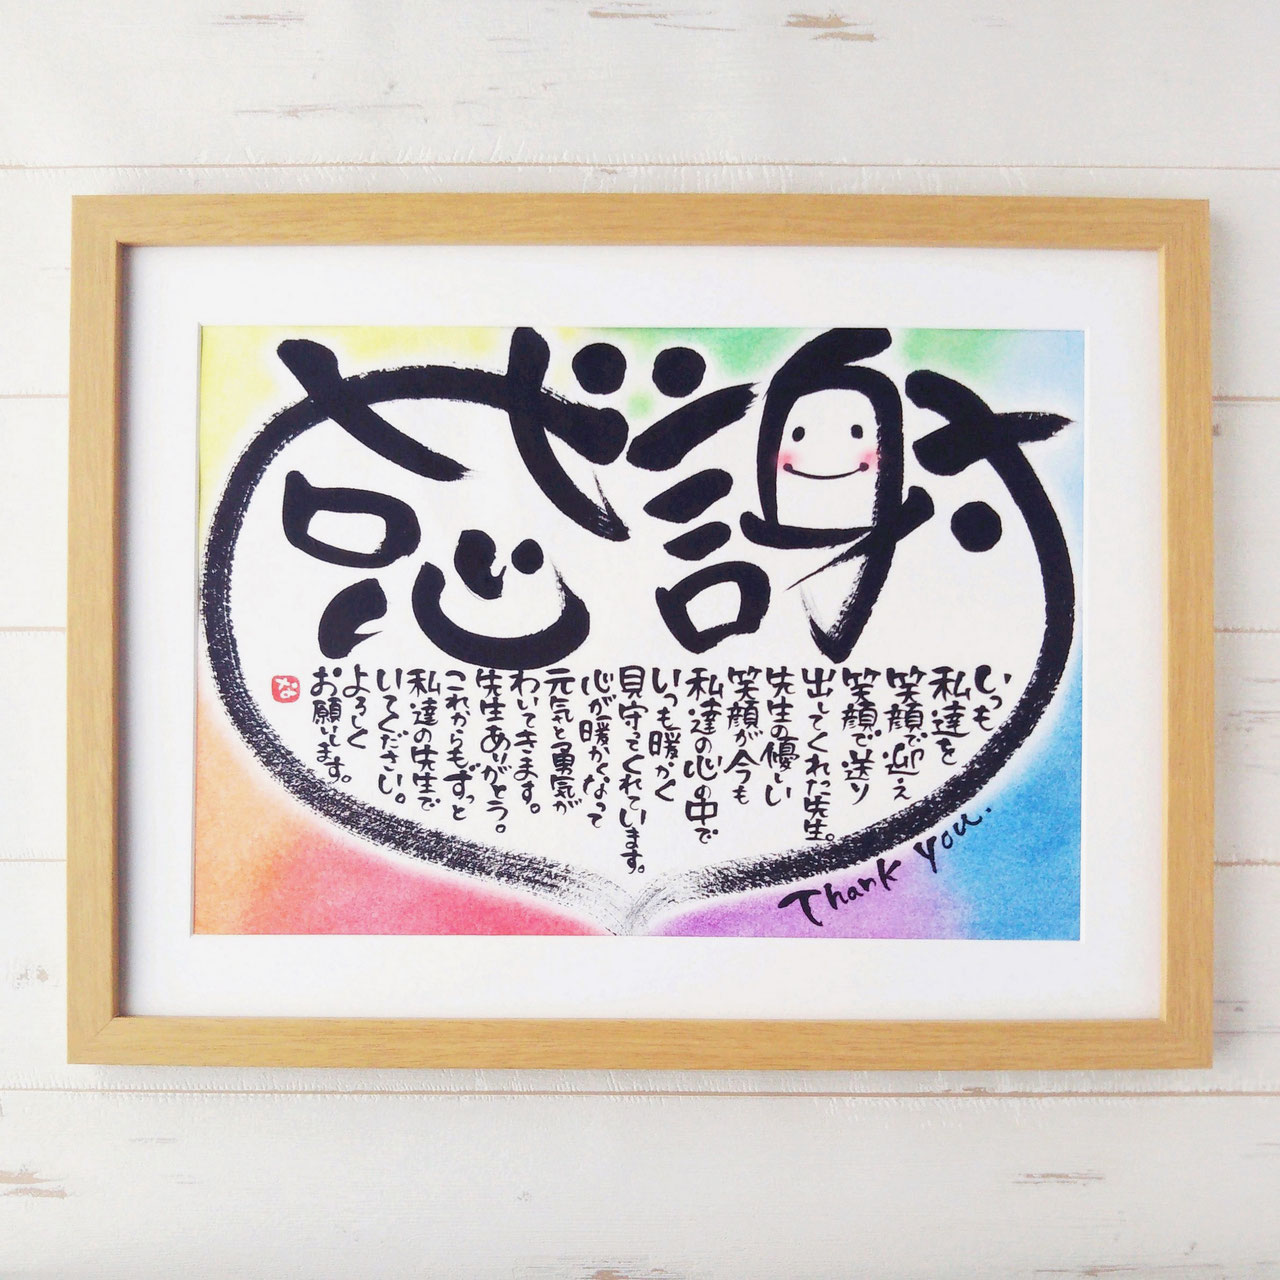 感謝
いつも
私達を
笑顔で迎え
笑顔で送り
出してくれた先生。
先生の優しい
笑顔が今も
私達の心の中で
いつも暖かく
見守ってくれています。
心が暖かくなって
元気と勇気が
わいてきます。
先生ありがとう。
これからもずっと
私達の先生で
いてください。
よろしく
お願いします。
な
Thank you.